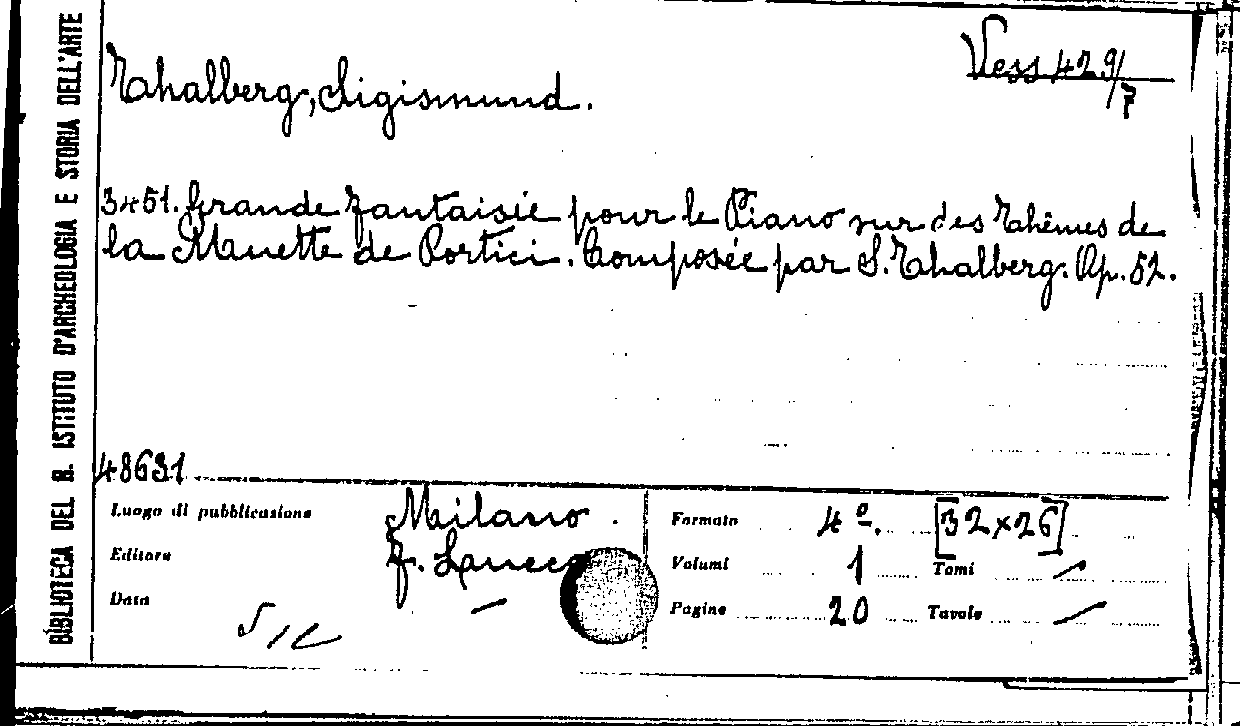 BIBLIOTECA DEL R. ISTITUTO D'ARCHEOLOGIA E STORIA DELL'ARTE
Vess 429/7
Thalberg, Sigismund.
3451. Grande fantaisie pour le Piano sur des Thêmes de
la Muette de Portici. Composée par S. Thalberg. Op. 52.
48631
Luogo di pubblicazione Milano.
Editore F. Lucca
Data —
Formato 4º. [32×26]
Volumi 1 Tomi —
Pagine 20 Tavole —